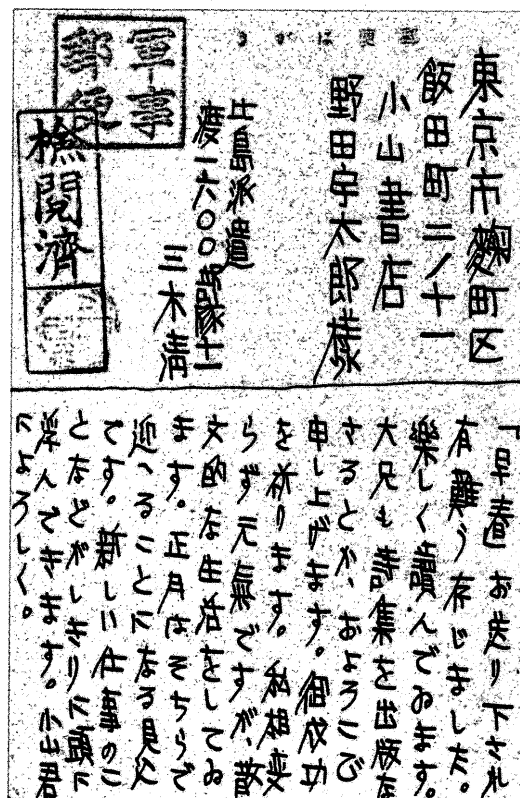 郵便はがき
東京市麹町区
飯田町二ノ十一
小山書店
野田宇太郎様
比島派遣
渡一六〇〇部隊十一
三木清
軍事
郵便
檢閲濟
「早春」お送り下され
有難う存じました。
樂しく讀んでゐます。
大兄も詩集を出版な
さるとか、およろこび
申し上げます。御成功
を祈ります。私相變
らず元氣ですが、散
文的な生活をしてゐ
ます。正月はそちらで
迎へることになる見込
です。新しい仕事のこ
となどがしきりに頭に
浮んできます。小山君
によろしく。